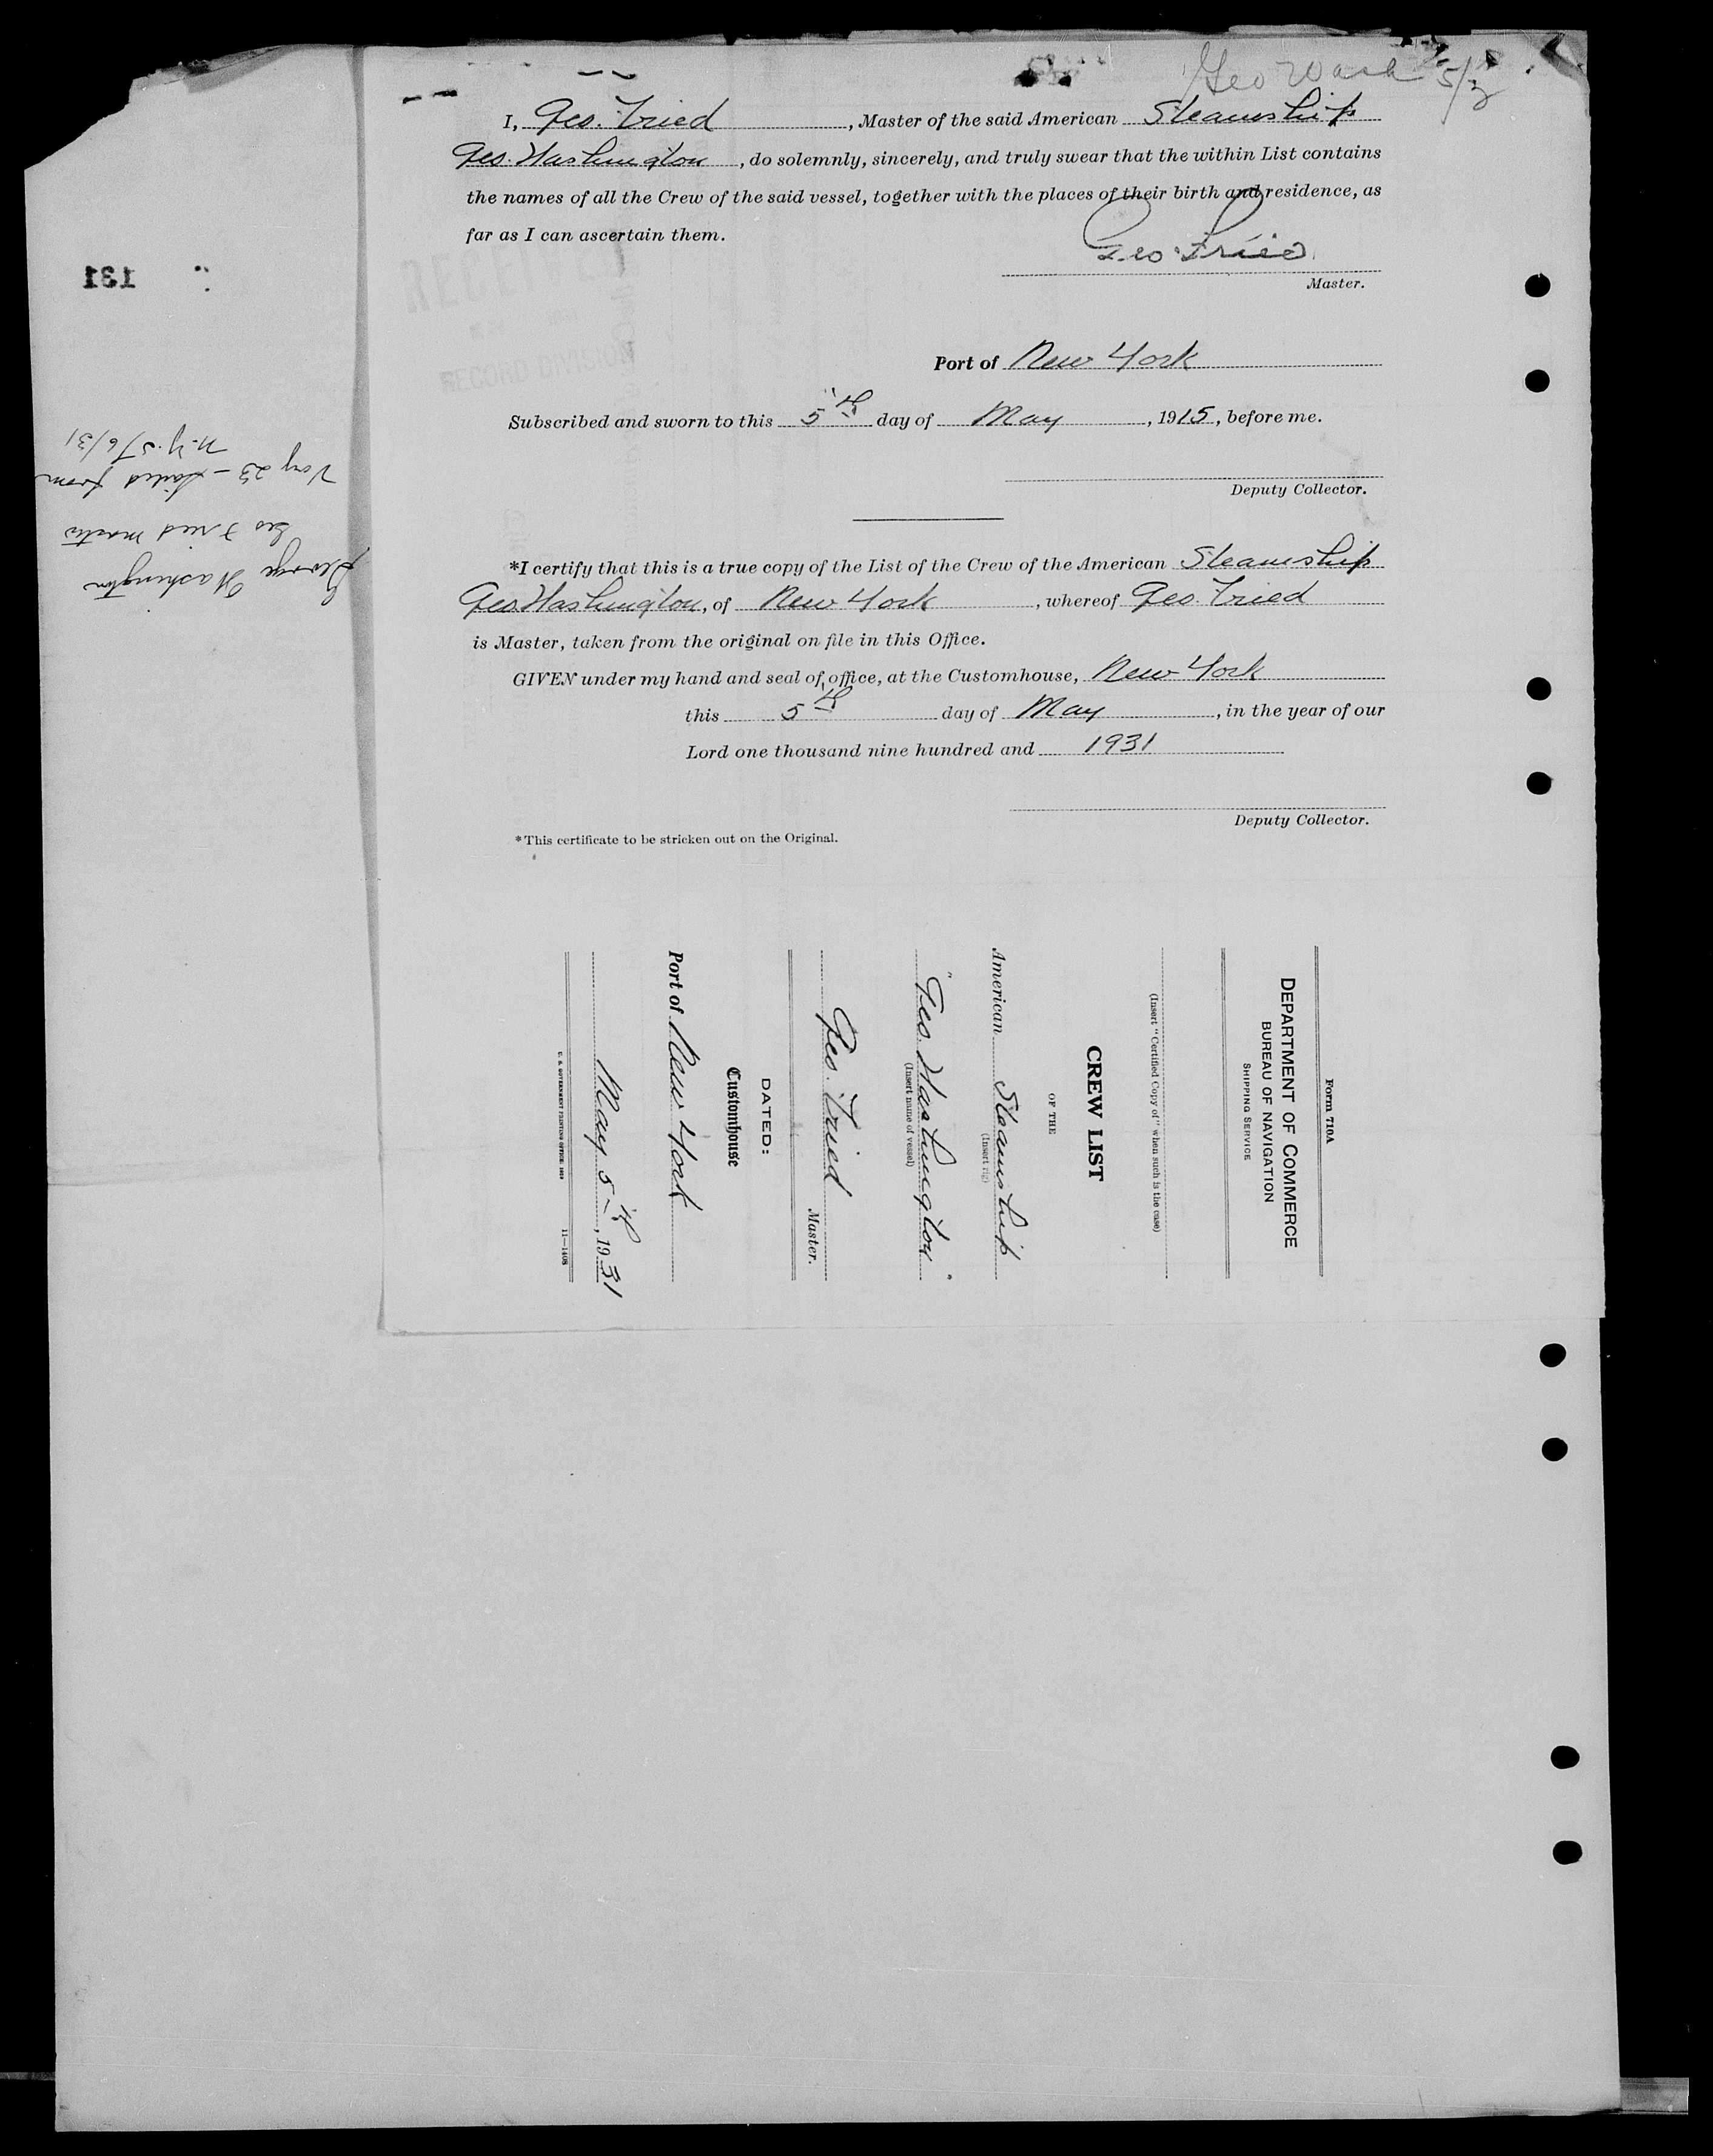 Geo Wash 5/
I, Geo. Fried, Master of the said American Steamship
Geo. Washington, do solemnly, sincerely, and truly swear that the within List contains
the names of all the Crew of the said vessel, together with the places of their birth and residence, as
far as I can ascertain them.
Geo Fried
Master.
Port of New York
Subscribed and sworn to this 5th day of May, 1915, before me.
Deputy Collector.
*I certify that this is a true copy of the List of the Crew of the American Steamship
Geo. Washington, of New York, whereof Geo. Fried
is Master, taken from the original on file in this Office.
GIVEN under my hand and seal of office, at the Customhouse, New York
this 5th day of May, in the year of our
Lord one thousand nine hundred and 1931
Deputy Collector.
*This certificate to be stricken out on the Original.
Form 710A
DEPARTMENT OF COMMERCE
BUREAU OF NAVIGATION
SHIPPING SERVICE
(Insert "Certified Copy of" when such is the case)
CREW LIST
OF THE
American Steamship
(Insert rig)
"Geo. Washington"
(Insert name of vessel)
Geo. Fried
Master.
DATED:
Customhouse
Port of New York
May 5th, 1931
U. S. GOVERNMENT PRINTING OFFICE
11—1408
George Washington
Geo Fried master
Voy 23 - Sailed from
N.Y. 5/6/31
131
RECORD DIVISION